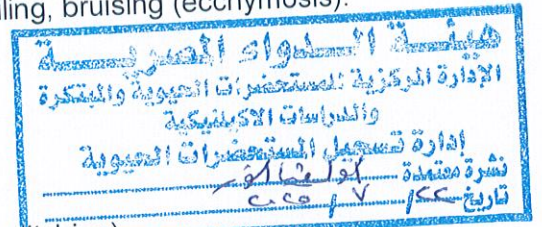 ling, bruising (ecchymosis).
هيئة الدواء المصرية
الإدارة المركزية للمستحضرات الحيوية والمبتكرة
والدراسات الاكلينيكية
إدارة تسجيل المستحضرات الحيوية
نشرة معتمدة
تاريخ ٢٢ / ٧ / ٢٠٢٥